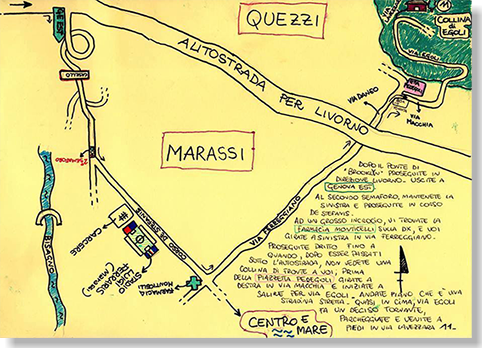 QUEZZI
COLLINA
di
EGOLI
GE EST
CASELLO
AUTOSTRADA PER LIVORNO
VIA EGOLI
VIA DANEO
VIA
MACCHIA
MARASSI
2° SEMAFORO
BISAGNO
CARCERE
STADIO
LUIGI
FERRARIS
(MARASSI)
CORSO DE STEFANIS
FARMACIA
MONTICELLI
VIA FEREGGIANO
CENTRO E
MARE
DOPO IL PONTE DI
"BROOKLYN" PROSEGUITE IN
DIREZIONE LIVORNO. USCITE A
GENOVA EST.
AL SECONDO SEMAFORO, MANTENETE LA
SINISTRA E PROSEGUITE IN CORSO
DE STEFANIS.
AD UN GROSSO INCROCIO, VI TROVATE LA
FARMACIA MONTICELLI SULLA DX, E VOI
GIRATE A SINISTRA IN VIA FEREGGIANO.
PROSEGUITE DRITTO FINO A
QUANDO, DOPO ESSER PASSATI
SOTTO L'AUTOSTRADA, NON VEDETE UNA
COLLINA DI FRONTE A VOI, PRIMA
DELLA PIAZZETTA PEDEGOLI GIRATE A
DESTRA IN VIA MACCHIA E INIZIATE A
SALIRE PER VIA EGOLI. ANDATE PIANO CHE E' UNA
STRADINA STRETTA. QUASI IN CIMA, VIA EGOLI
FA UN DECISO TORNANTE,
PARCHEGGIATE E VENITE A
PIEDI IN VIA 11